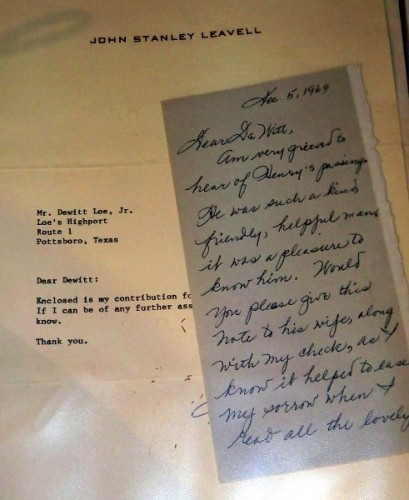 JOHN STANLEY LEAVELL
Mr. Dewitt Loe, Jr.
Loe's Highport
Route 1
Pottsboro, Texas
Dear Dewitt:
Enclosed is my contribution fo
If I can be of any further ass
know.
Thank you.
Dec. 5, 1969
Dear DeWitt,
Am very grieved to
hear of Henry's passing.
He was such a kind
friendly, helpful man,
it was a pleasure to
know him. Would
you please give this
note to his wife, along
with my check, as I
know it helped to ease
my sorrow when I
read all the lovely